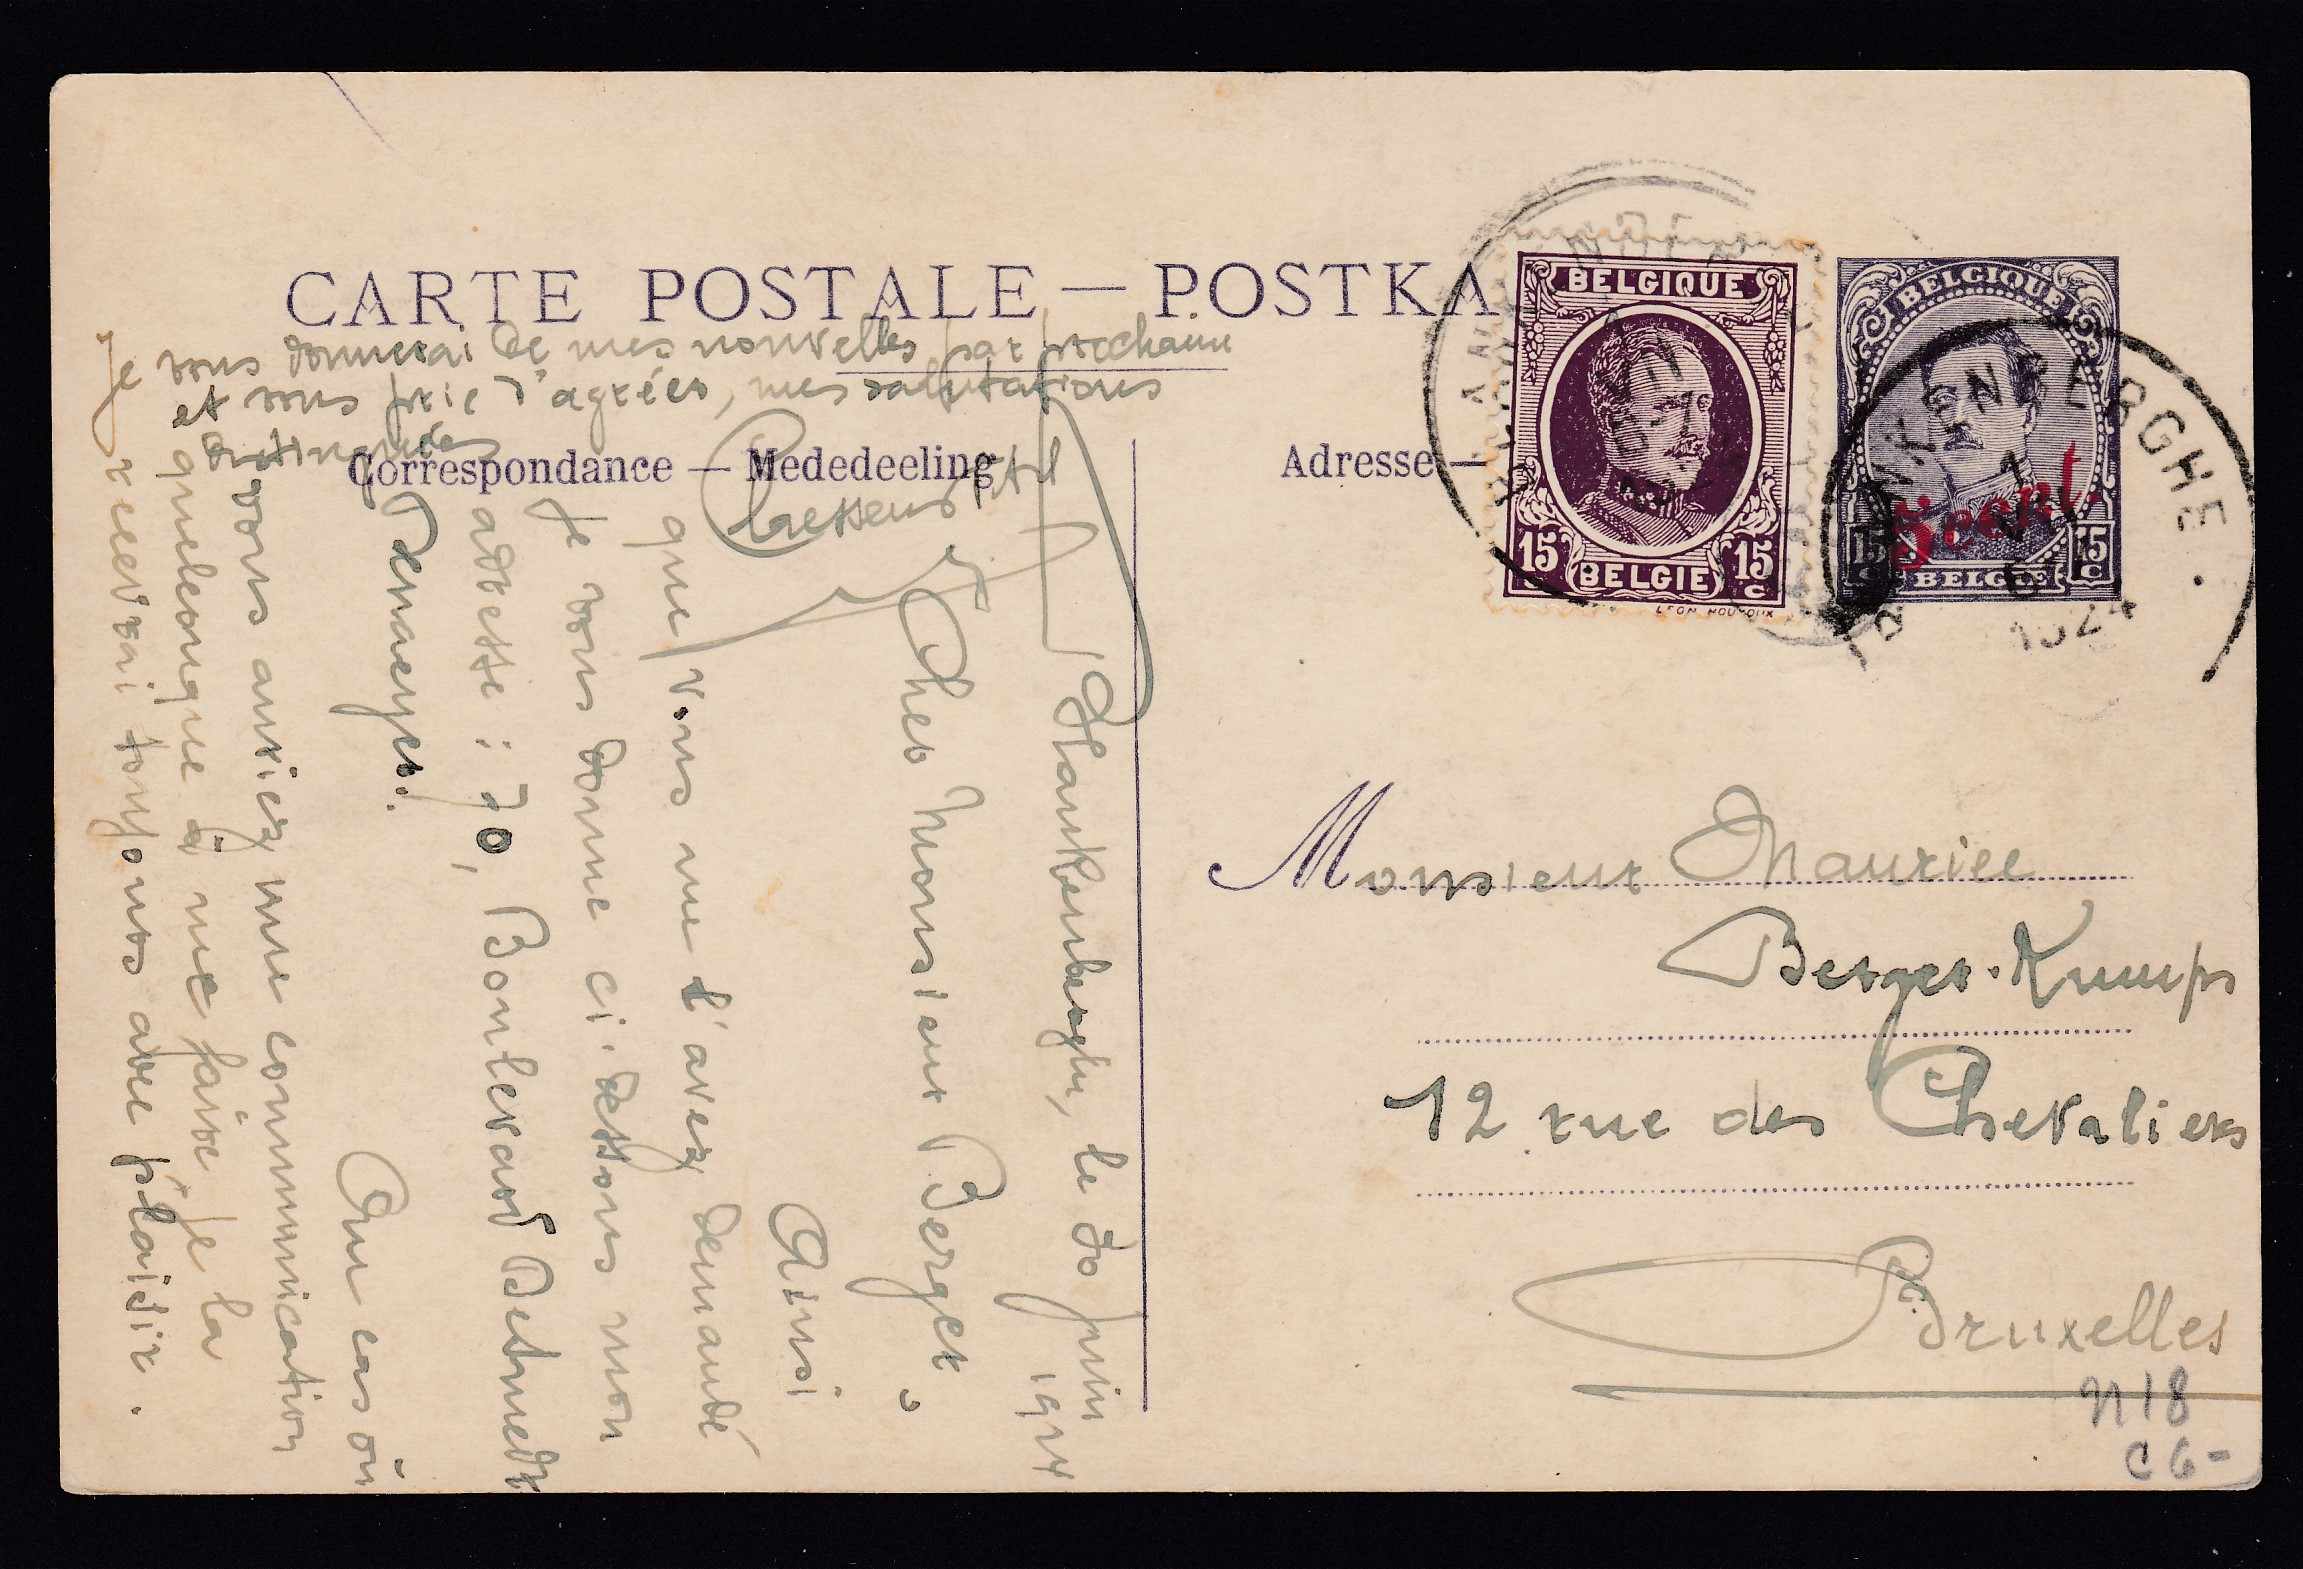 CARTE POSTALE — POSTKA
Correspondance — Mededeeling
Adresse —
BELGIQUE
15 c 15 c
BELGIE
BELGIQUE
5 cent.
15 c 15 c
BELGIE
BLANKENBERGHE.
1924
Blankenberghe, le 30 juin
1924
Cher Monsieur Berger.
Ainsi
que vous me l'avez demandé
je vous donne ci-dessous mon
adresse : 30, Boulevard Desmedt
Au cas où
vous auriez une communication
quelconque à me faire, je la
recevrai toujours avec plaisir.
Je
vous donnerai de mes nouvelles par prochaine
et vous prie d'agréer, mes salutations
distinguées
Monsieur Maurice
Berger-Kumps
12 rue des Chevaliers
Bruxelles
N18
C6-